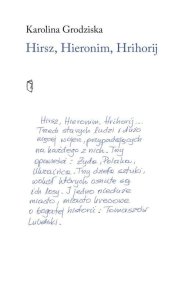 Karolina Grodziska
Hirsz, Hieronim, Hrihorij
Hirsz, Hieronim, Hrihorij...
Trzech starych ludzi i dużo
więcej wojen, przypadających
na każdego z nich. Trzy
opowieści: Żyda, Polaka,
Ukraińca. Trzy dzieła sztuki,
wokół których osnute są
ich losy. I jedno niewielkie
miasto, miasto kresowe
o bogatej historii: Tomaszów
Lubelski.